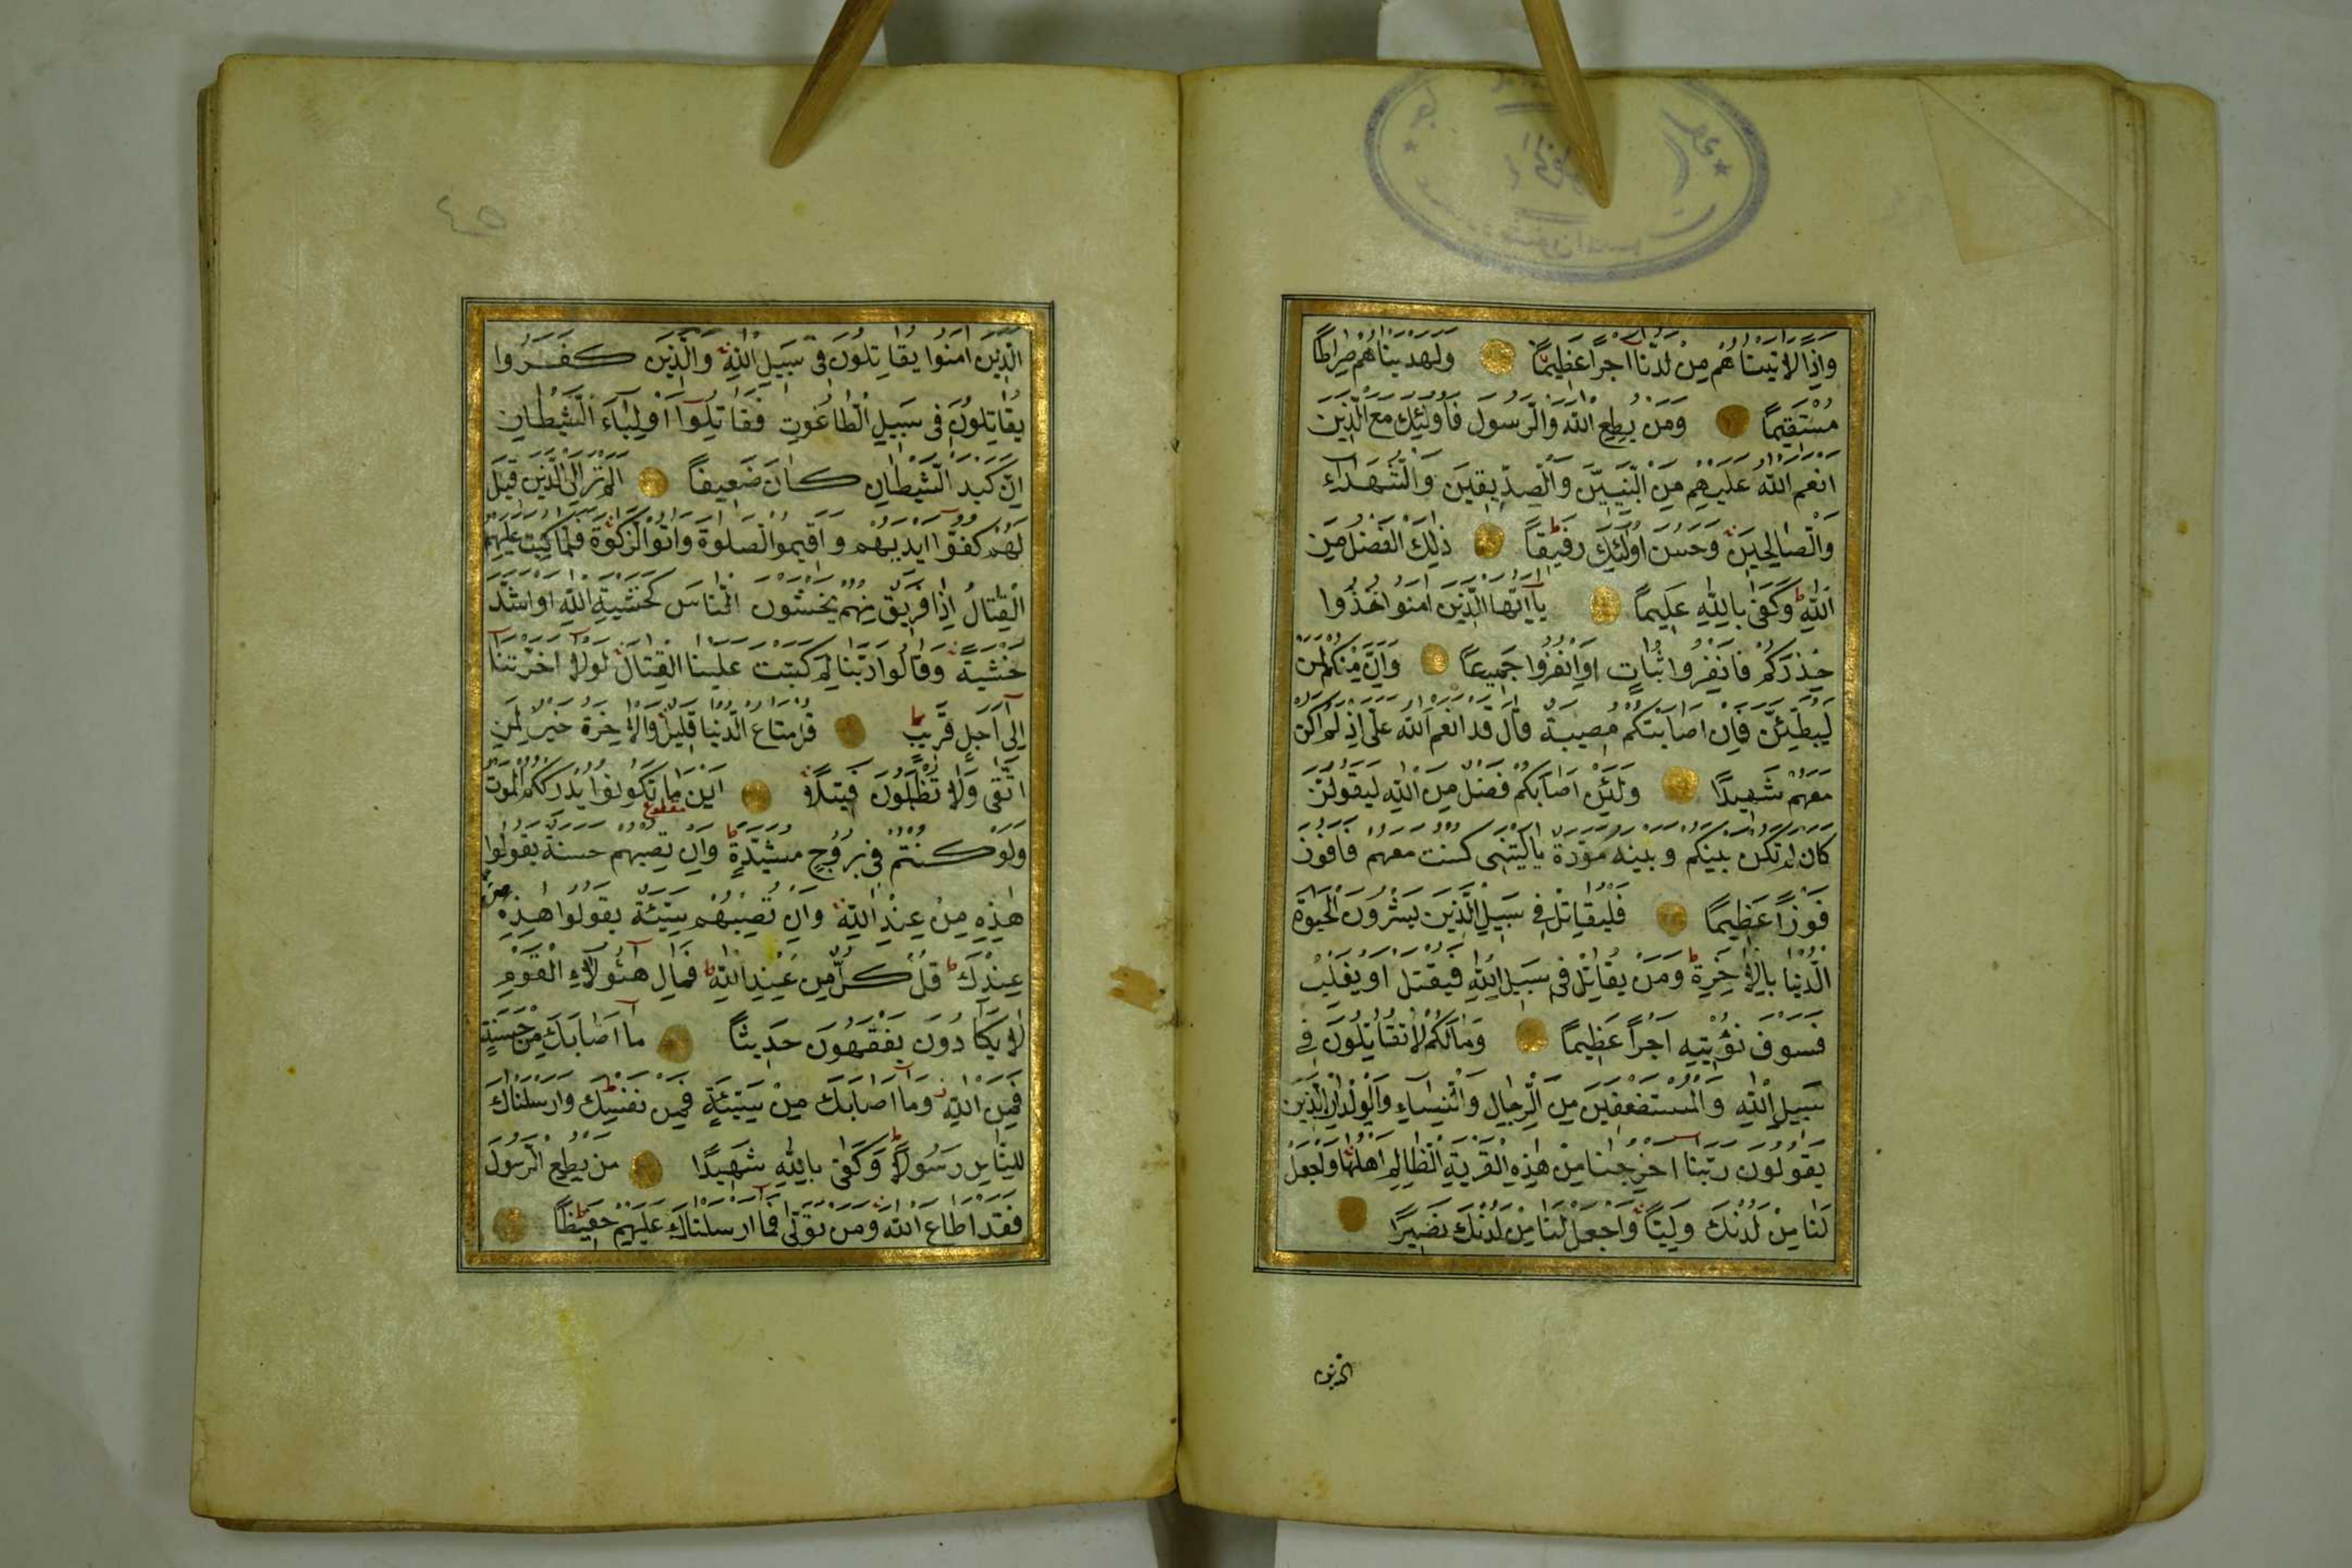 وَاِذًا لَاٰتَيْنَاهُمْ مِنْ لَدُنَّا اَجْرًا عَظِيمًا وَلَهَدَيْنَاهُمْ صِرَاطًا
مُسْتَقِيمًا وَمَنْ يُطِعِ اللّٰهَ وَالرَّسُولَ فَاُولٰئِكَ مَعَ الَّذِينَ
اَنْعَمَ اللّٰهُ عَلَيْهِمْ مِنَ النَّبِيِّينَ وَالصِّدِّيقِينَ وَالشُّهَدَاءِ
وَالصَّالِحِينَ وَحَسُنَ اُولٰئِكَ رَفِيقًا ذٰلِكَ الْفَضْلُ مِنَ
اللّٰهِ وَكَفٰى بِاللّٰهِ عَلِيمًا يَا اَيُّهَا الَّذِينَ اٰمَنُوا خُذُوا
حِذْرَكُمْ فَانْفِرُوا ثُبَاتٍ اَوِ انْفِرُوا جَمِيعًا وَاِنَّ مِنْكُمْ لَمَنْ
لَيُبَطِّئَنَّ فَاِنْ اَصَابَتْكُمْ مُصِيبَةٌ قَالَ قَدْ اَنْعَمَ اللّٰهُ عَلَيَّ اِذْ لَمْ اَكُنْ
مَعَهُمْ شَهِيدًا وَلَئِنْ اَصَابَكُمْ فَضْلٌ مِنَ اللّٰهِ لَيَقُولَنَّ
كَاَنْ لَمْ تَكُنْ بَيْنَكُمْ وَبَيْنَهُ مَوَدَّةٌ يَا لَيْتَنِي كُنْتُ مَعَهُمْ فَاَفُوزَ
فَوْزًا عَظِيمًا فَلْيُقَاتِلْ فِي سَبِيلِ اللّٰهِ الَّذِينَ يَشْرُونَ الْحَيٰوةَ
الدُّنْيَا بِالْاٰخِرَةِ وَمَنْ يُقَاتِلْ فِي سَبِيلِ اللّٰهِ فَيُقْتَلْ اَوْ يَغْلِبْ
فَسَوْفَ نُؤْتِيهِ اَجْرًا عَظِيمًا وَمَا لَكُمْ لَا تُقَاتِلُونَ فِي
سَبِيلِ اللّٰهِ وَالْمُسْتَضْعَفِينَ مِنَ الرِّجَالِ وَالنِّسَاءِ وَالْوِلْدَانِ الَّذِينَ
يَقُولُونَ رَبَّنَا اَخْرِجْنَا مِنْ هٰذِهِ الْقَرْيَةِ الظَّالِمِ اَهْلُهَا وَاجْعَلْ
لَنَا مِنْ لَدُنْكَ وَلِيًّا وَاجْعَلْ لَنَا مِنْ لَدُنْكَ نَصِيرًا
الذين
٤٥
الَّذِينَ اٰمَنُوا يُقَاتِلُونَ فِي سَبِيلِ اللّٰهِ وَالَّذِينَ كَفَرُوا
يُقَاتِلُونَ فِي سَبِيلِ الطَّاغُوتِ فَقَاتِلُوا اَوْلِيَاءَ الشَّيْطَانِ
اِنَّ كَيْدَ الشَّيْطَانِ كَانَ ضَعِيفًا اَلَمْ تَرَ اِلَى الَّذِينَ قِيلَ
لَهُمْ كُفُّوا اَيْدِيَهُمْ وَاَقِيمُوا الصَّلٰوةَ وَاٰتُوا الزَّكٰوةَ فَلَمَّا كُتِبَ عَلَيْهِمُ
الْقِتَالُ اِذَا فَرِيقٌ مِنْهُمْ يَخْشَوْنَ النَّاسَ كَخَشْيَةِ اللّٰهِ اَوْ اَشَدَّ
خَشْيَةً وَقَالُوا رَبَّنَا لِمَ كَتَبْتَ عَلَيْنَا الْقِتَالَ لَوْلَا اَخَّرْتَنَا
اِلٰى اَجَلٍ قَرِيبٍ قُلْ مَتَاعُ الدُّنْيَا قَلِيلٌ وَالْاٰخِرَةُ خَيْرٌ لِمَنِ
اتَّقٰى وَلَا تُظْلَمُونَ فَتِيلًا اَيْنَ مَا تَكُونُوا يُدْرِكْكُمُ الْمَوْتُ
مقطوع
وَلَوْ كُنْتُمْ فِي بُرُوجٍ مُشَيَّدَةٍ وَاِنْ تُصِبْهُمْ حَسَنَةٌ يَقُولُوا
هٰذِهِ مِنْ عِنْدِ اللّٰهِ وَاِنْ تُصِبْهُمْ سَيِّئَةٌ يَقُولُوا هٰذِهِ مِنْ
عِنْدِكَ قُلْ كُلٌّ مِنْ عِنْدِ اللّٰهِ فَمَالِ هٰؤُلَاءِ الْقَوْمِ
لَا يَكَادُونَ يَفْقَهُونَ حَدِيثًا مَا اَصَابَكَ مِنْ حَسَنَةٍ
فَمِنَ اللّٰهِ وَمَا اَصَابَكَ مِنْ سَيِّئَةٍ فَمِنْ نَفْسِكَ وَاَرْسَلْنَاكَ
لِلنَّاسِ رَسُولًا وَكَفٰى بِاللّٰهِ شَهِيدًا مَنْ يُطِعِ الرَّسُولَ
فَقَدْ اَطَاعَ اللّٰهَ وَمَنْ تَوَلّٰى فَمَا اَرْسَلْنَاكَ عَلَيْهِمْ حَفِيظًا